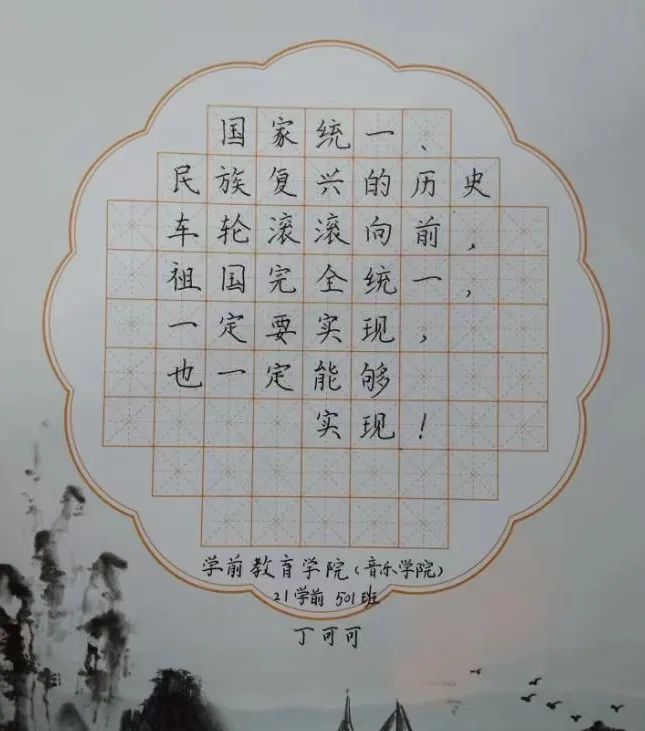 国家统一、
民族复兴的历史
车轮滚滚向前，
祖国完全统一，
一定要实现，
也一定能够
实现！
学前教育学院（音乐学院）
21学前 501班
丁可可